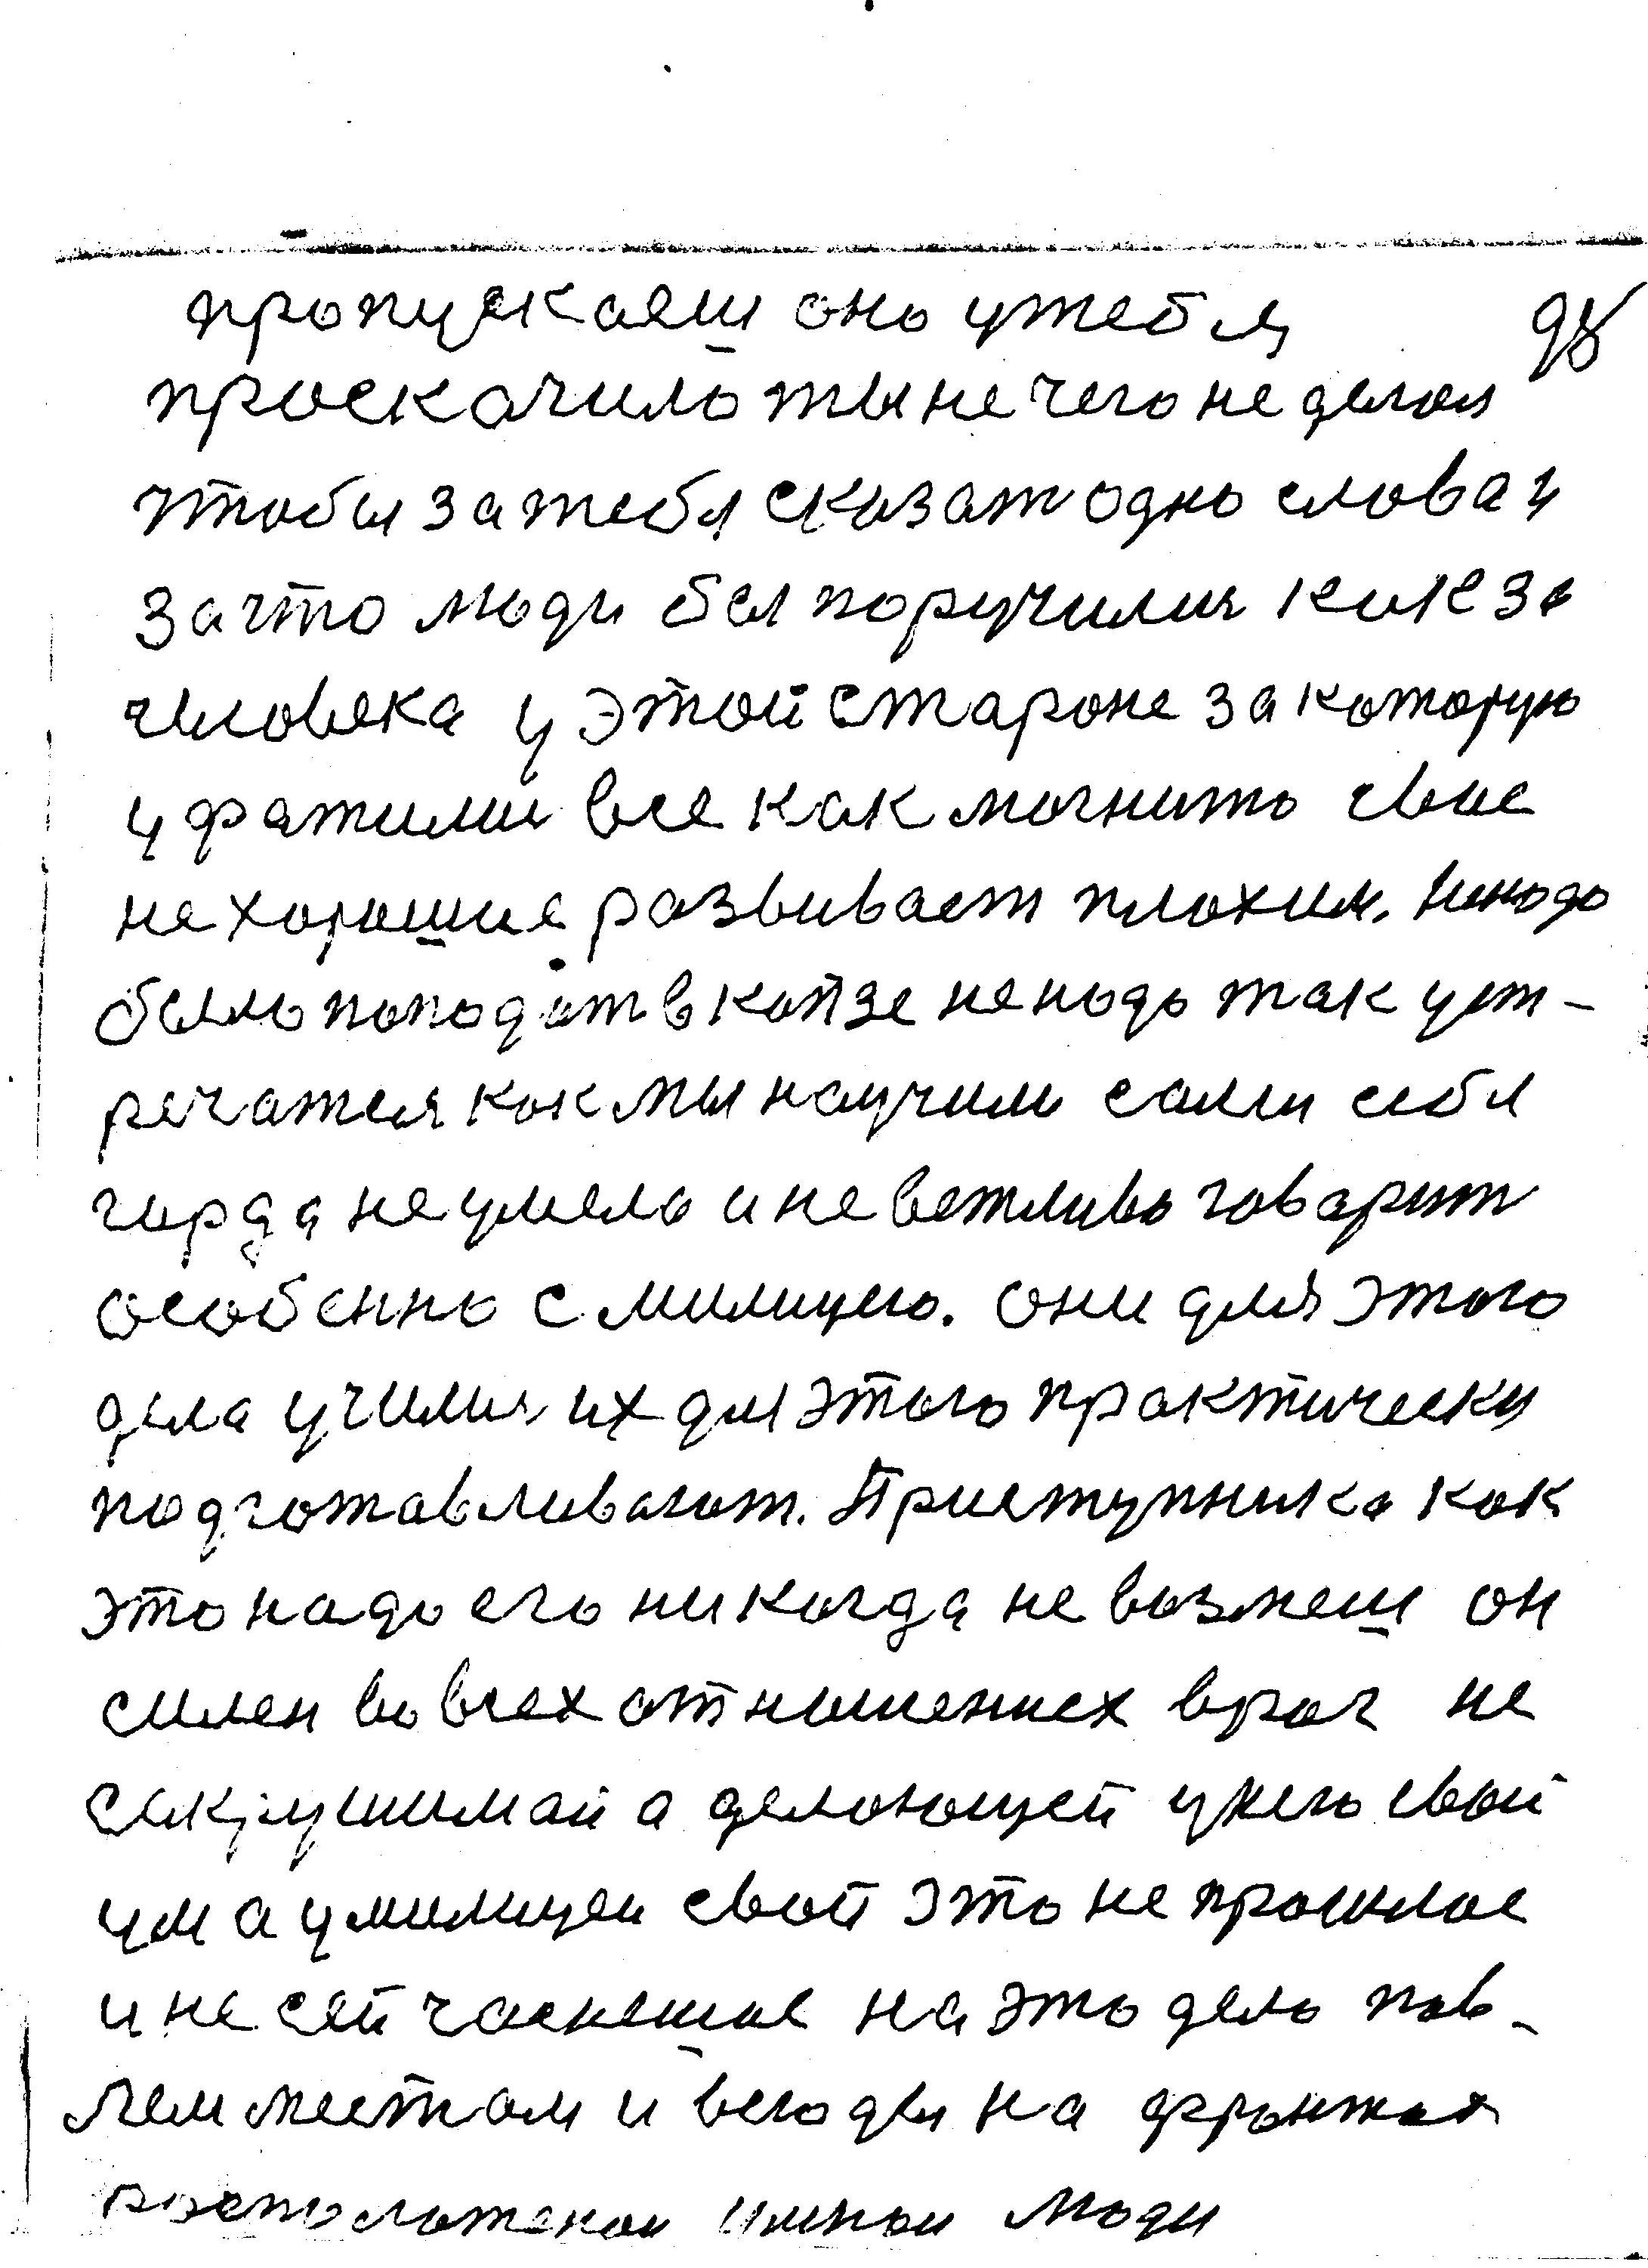 пропускаеш оно утебя 98
проскачило ты не чего не делал
чтобы за тебя сказат одно слова и
за что люди бы поручилися как за
человека у этой староне за которую
уфатили все как магнито свое
не хорошие развивает плохим. Ненадо
было поподат в капзе не надо так уст-
речатся как мы научили сами себя
гирда не умело и не ветливо говарит
особенно с милицею. они для этого
дела училися их для этого практически
подготавливают. Приступника как
это надо его никогда не возмеш он
силен во всех отношениех враг не
сакрушимай а делающей у него свой
ум а у милицеи свой это не прошлое
и не сейчаснешие на это дело пов-
сем местам и всегды на
располотеной люди